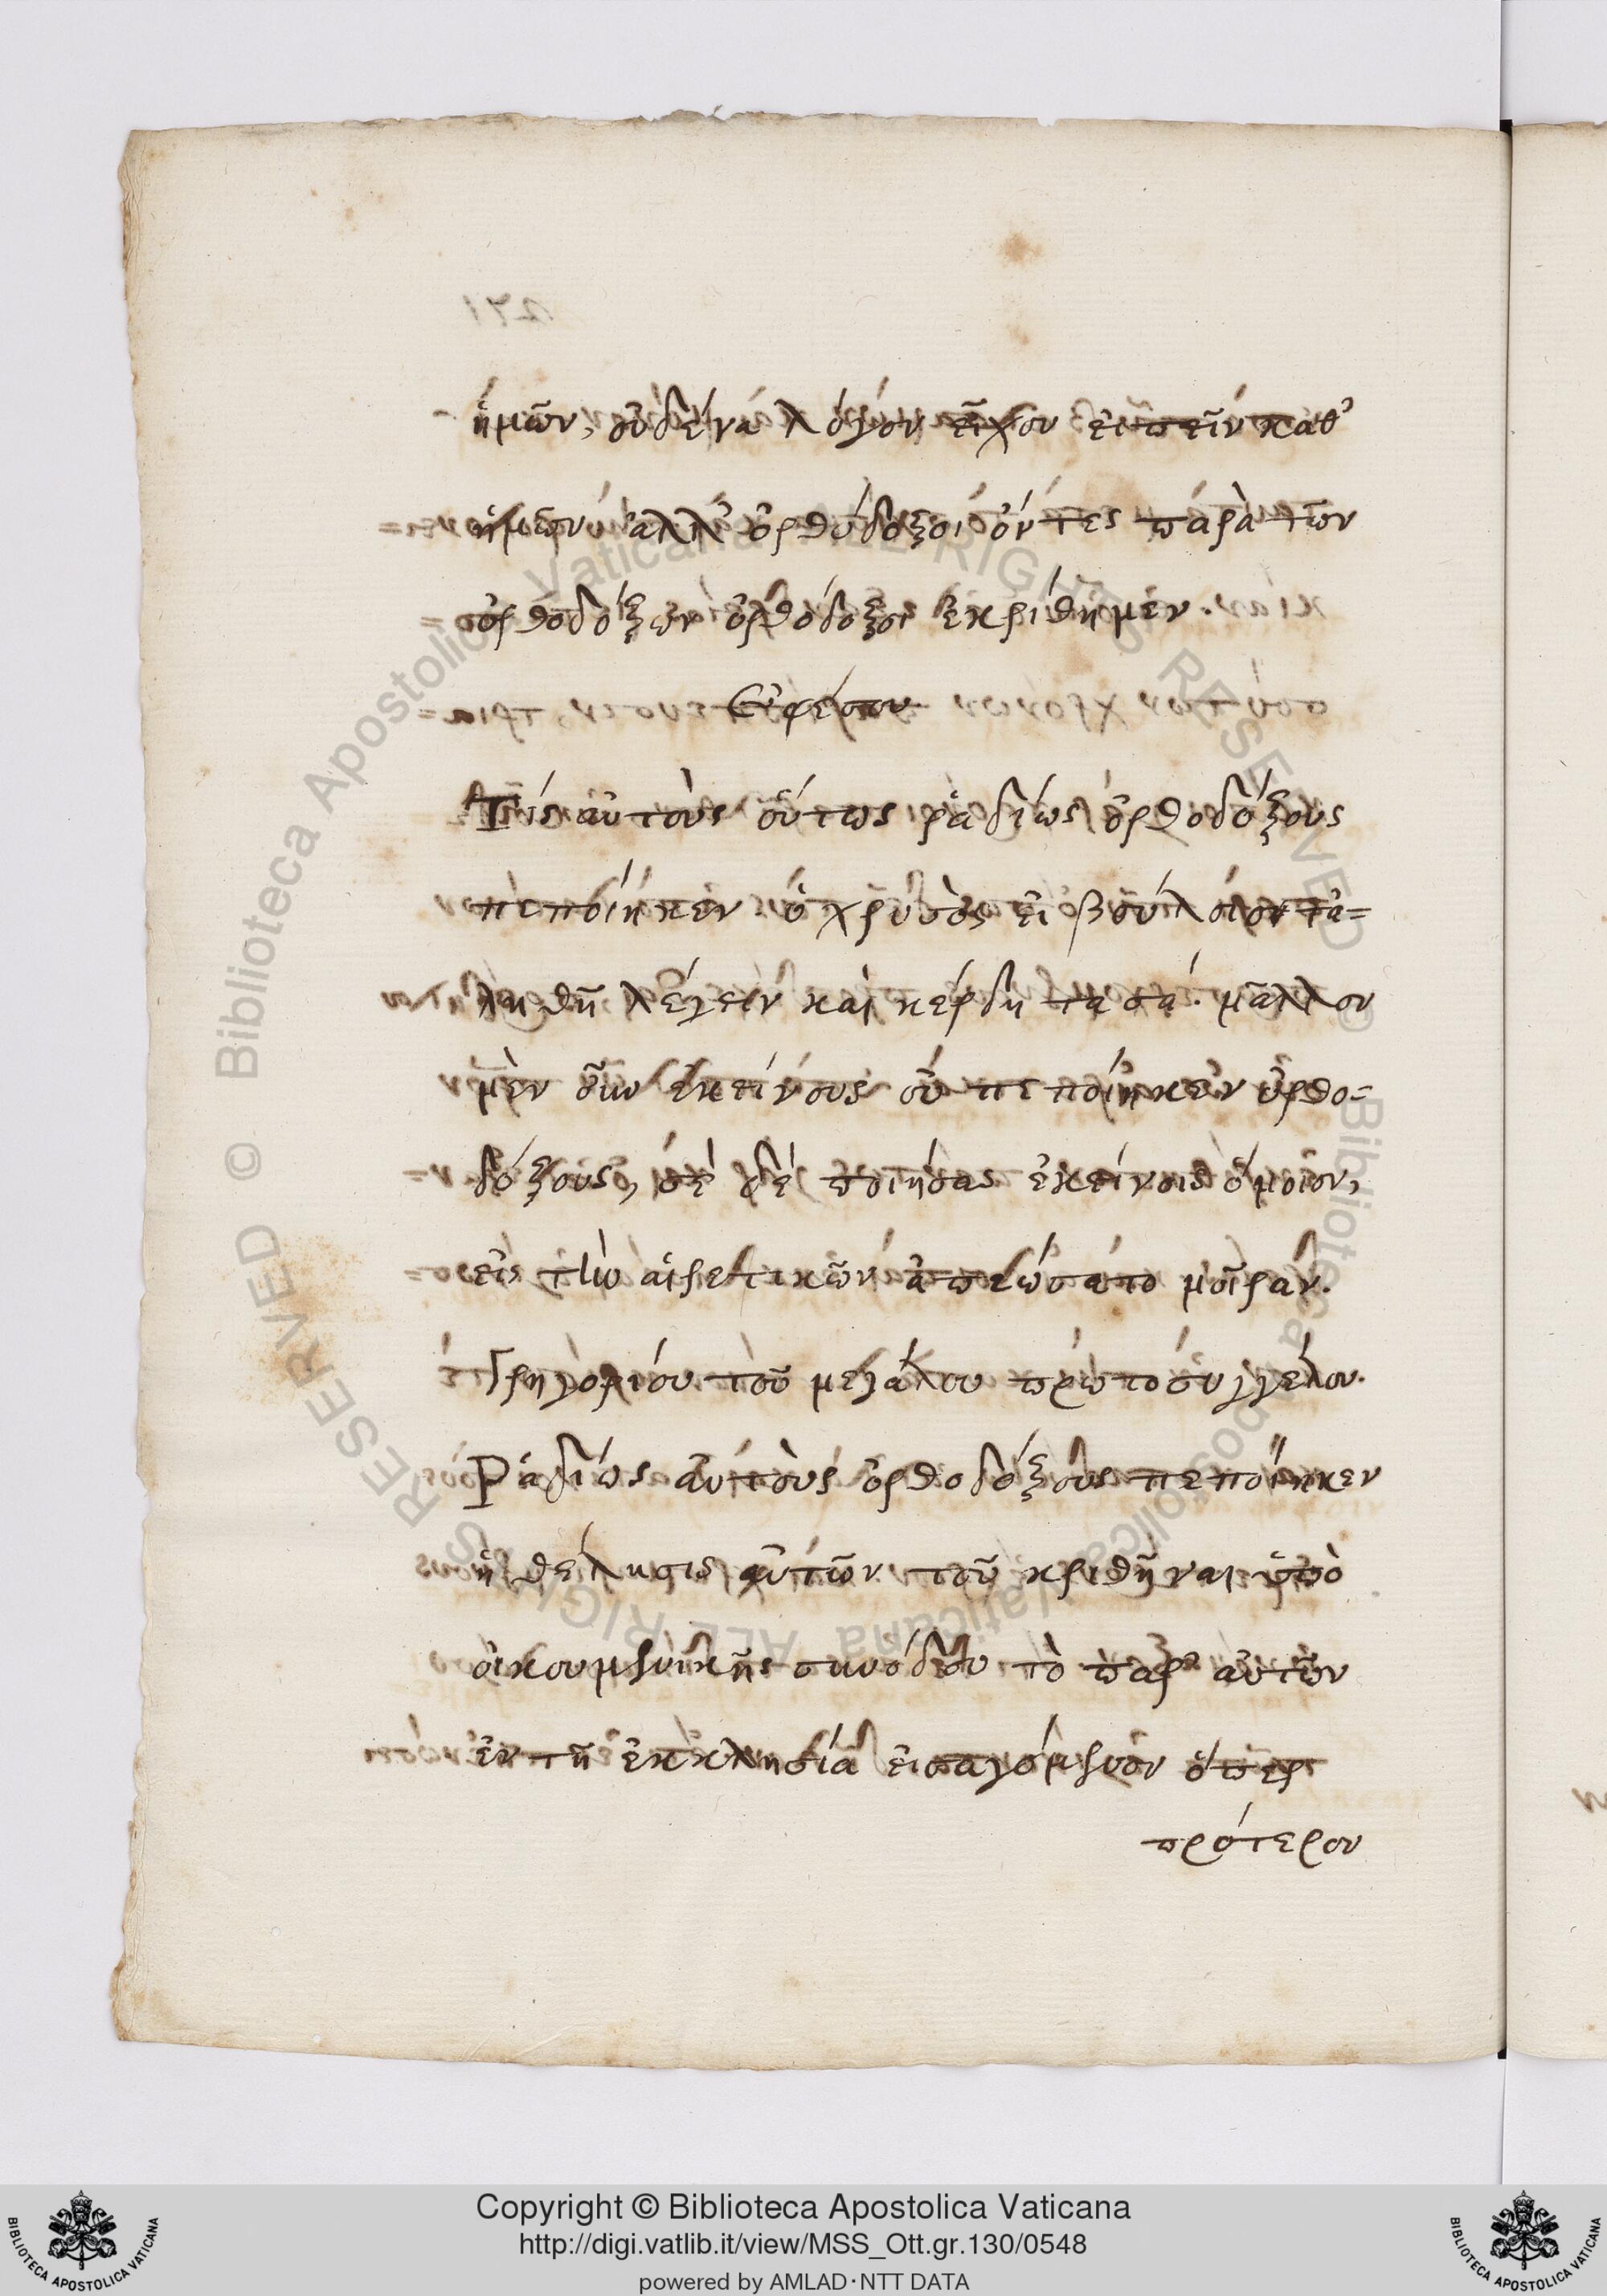 ἡμῶν, οὐδένα λόγον εἶχον εἰπεῖν καθ’
ἡμῶν ἀλλ’ ὀρθόδοξοι ὄντες παρὰ τῶν
ὀρθοδόξων ὀρθόδοξοι ἐκρίθημεν.
Ἐφέσου
Τίς αὐτοὺς οὕτως ῥαδίως ὀρθοδόξους
πεποίηκεν ὁ χρυσὸς εἰ βούλοιο τἀ=
ληθῆ λέγειν καὶ κέρδη τὰ σά. μᾶλλον
μὲν οὖν ἐκείνους οὐ πεποίηκεν ὀρθο=
δόξους, σὲ δὲ ποιήσας ἐκείνοις ὅμοιον,
εἰς τὴν αἱρετικῶν ἀπεώσατο μοῖραν.
Γρηγορίου τοῦ μεγάλου πρωτοσυγγέλου.
Ῥαδίως αὐτοὺς ὀρθοδόξους πεποίηκεν
ἡ θέλησις αὐτῶν τοῦ κριθῆναι ὑπὸ
οἰκουμενικῆς συνόδου τὸ παρ’ αὐτῶν
ἐν τῇ ἐκκλησίᾳ εἰσαγόμενον ὅπερ
πρότερον
Copyright © Biblioteca Apostolica Vaticana
http://digi.vatlib.it/view/MSS_Ott.gr.130/0548
powered by AMLAD·NTT DATA